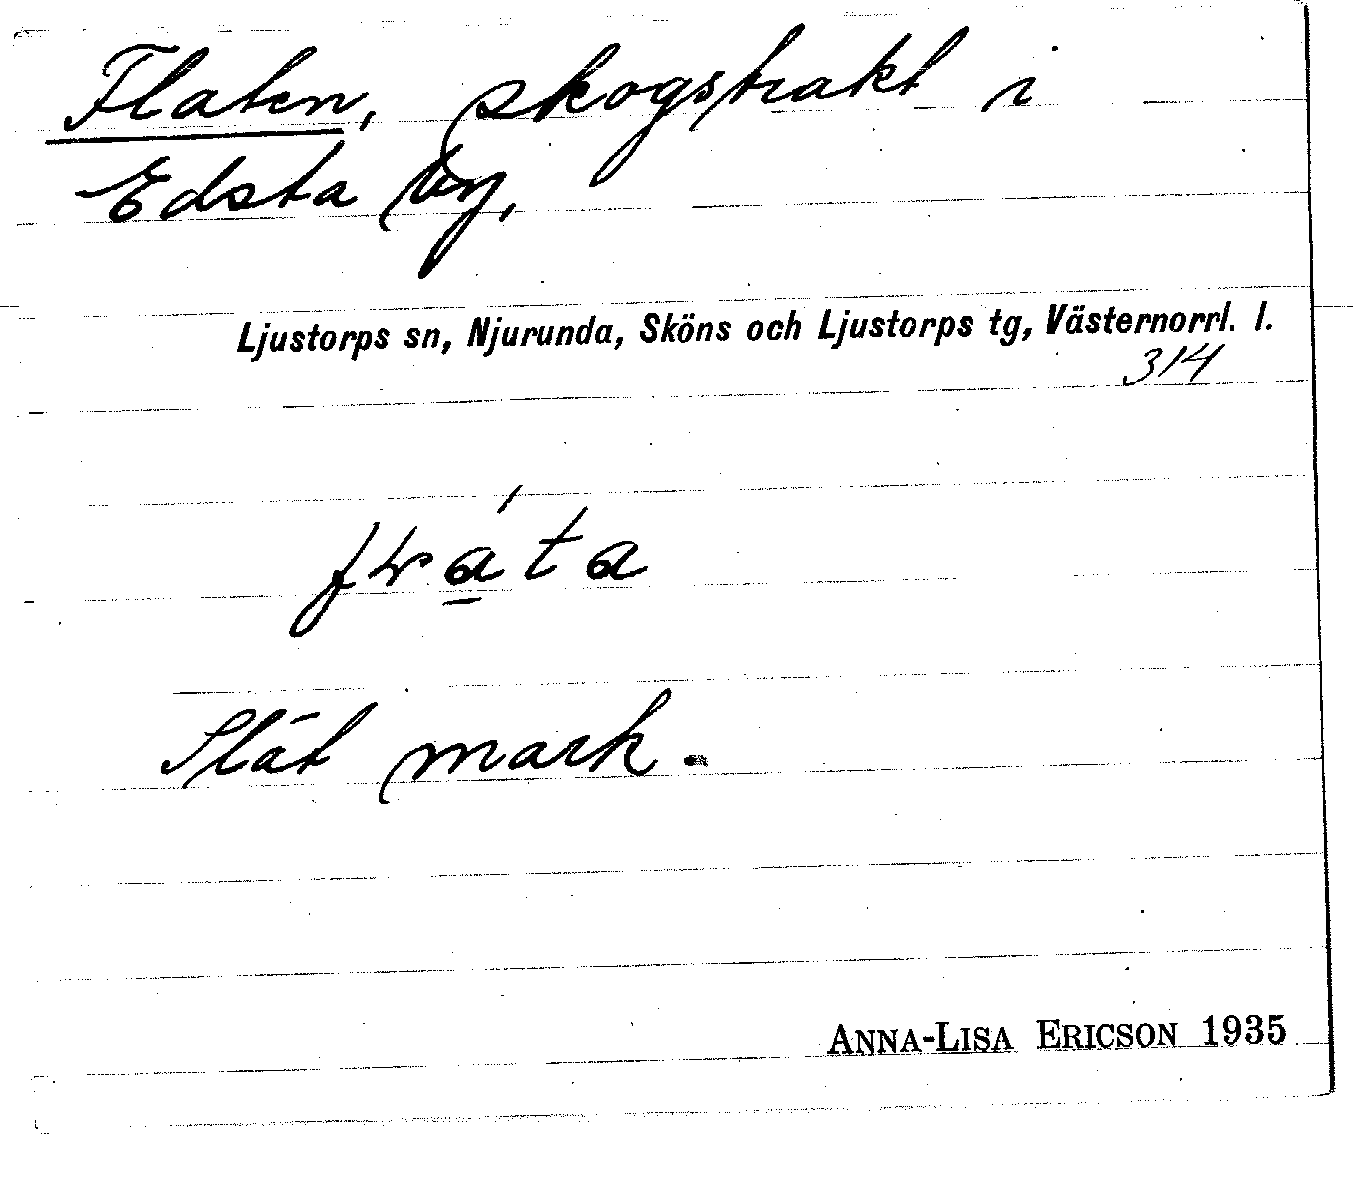 Flaten, skogstrakt i
Edsta by,
Ljustorps sn, Njurunda, Sköns och Ljustorps tg, Västernorrl. l.
314
Slät mark.
ANNA-LISA ERICSON 1935